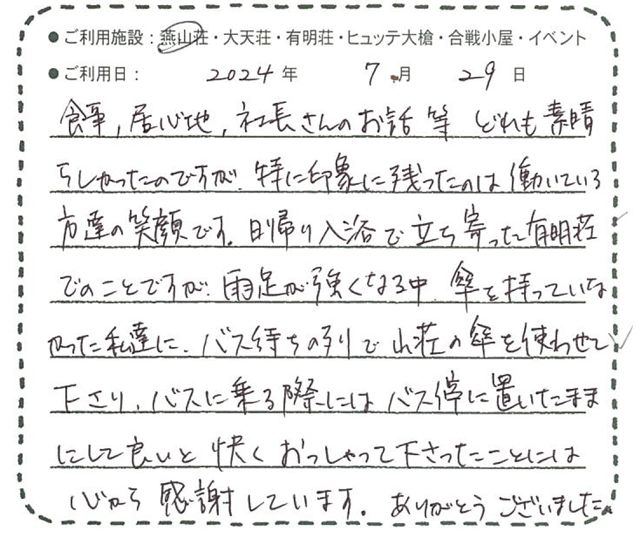 ●ご利用施設：燕山荘・大天荘・有明荘・ヒュッテ大槍・合戦小屋・イベント
●ご利用日： 2024年 7月 29日
食事，居心地，社長さんのお話等 どれも素晴
らしかったのですが、特に印象に残ったのは働いている
方達の笑顔です。日帰り入浴で立ち寄った有明荘
でのことですが、雨足が強くなる中 傘を持っていな
かった私達に、バス待ちの列で山荘の傘を使わせて
下さり、バスに乗る際にはバス停に置いたまま
にして良いと快くおっしゃって下さったことには
心から感謝しています。ありがとうございました。